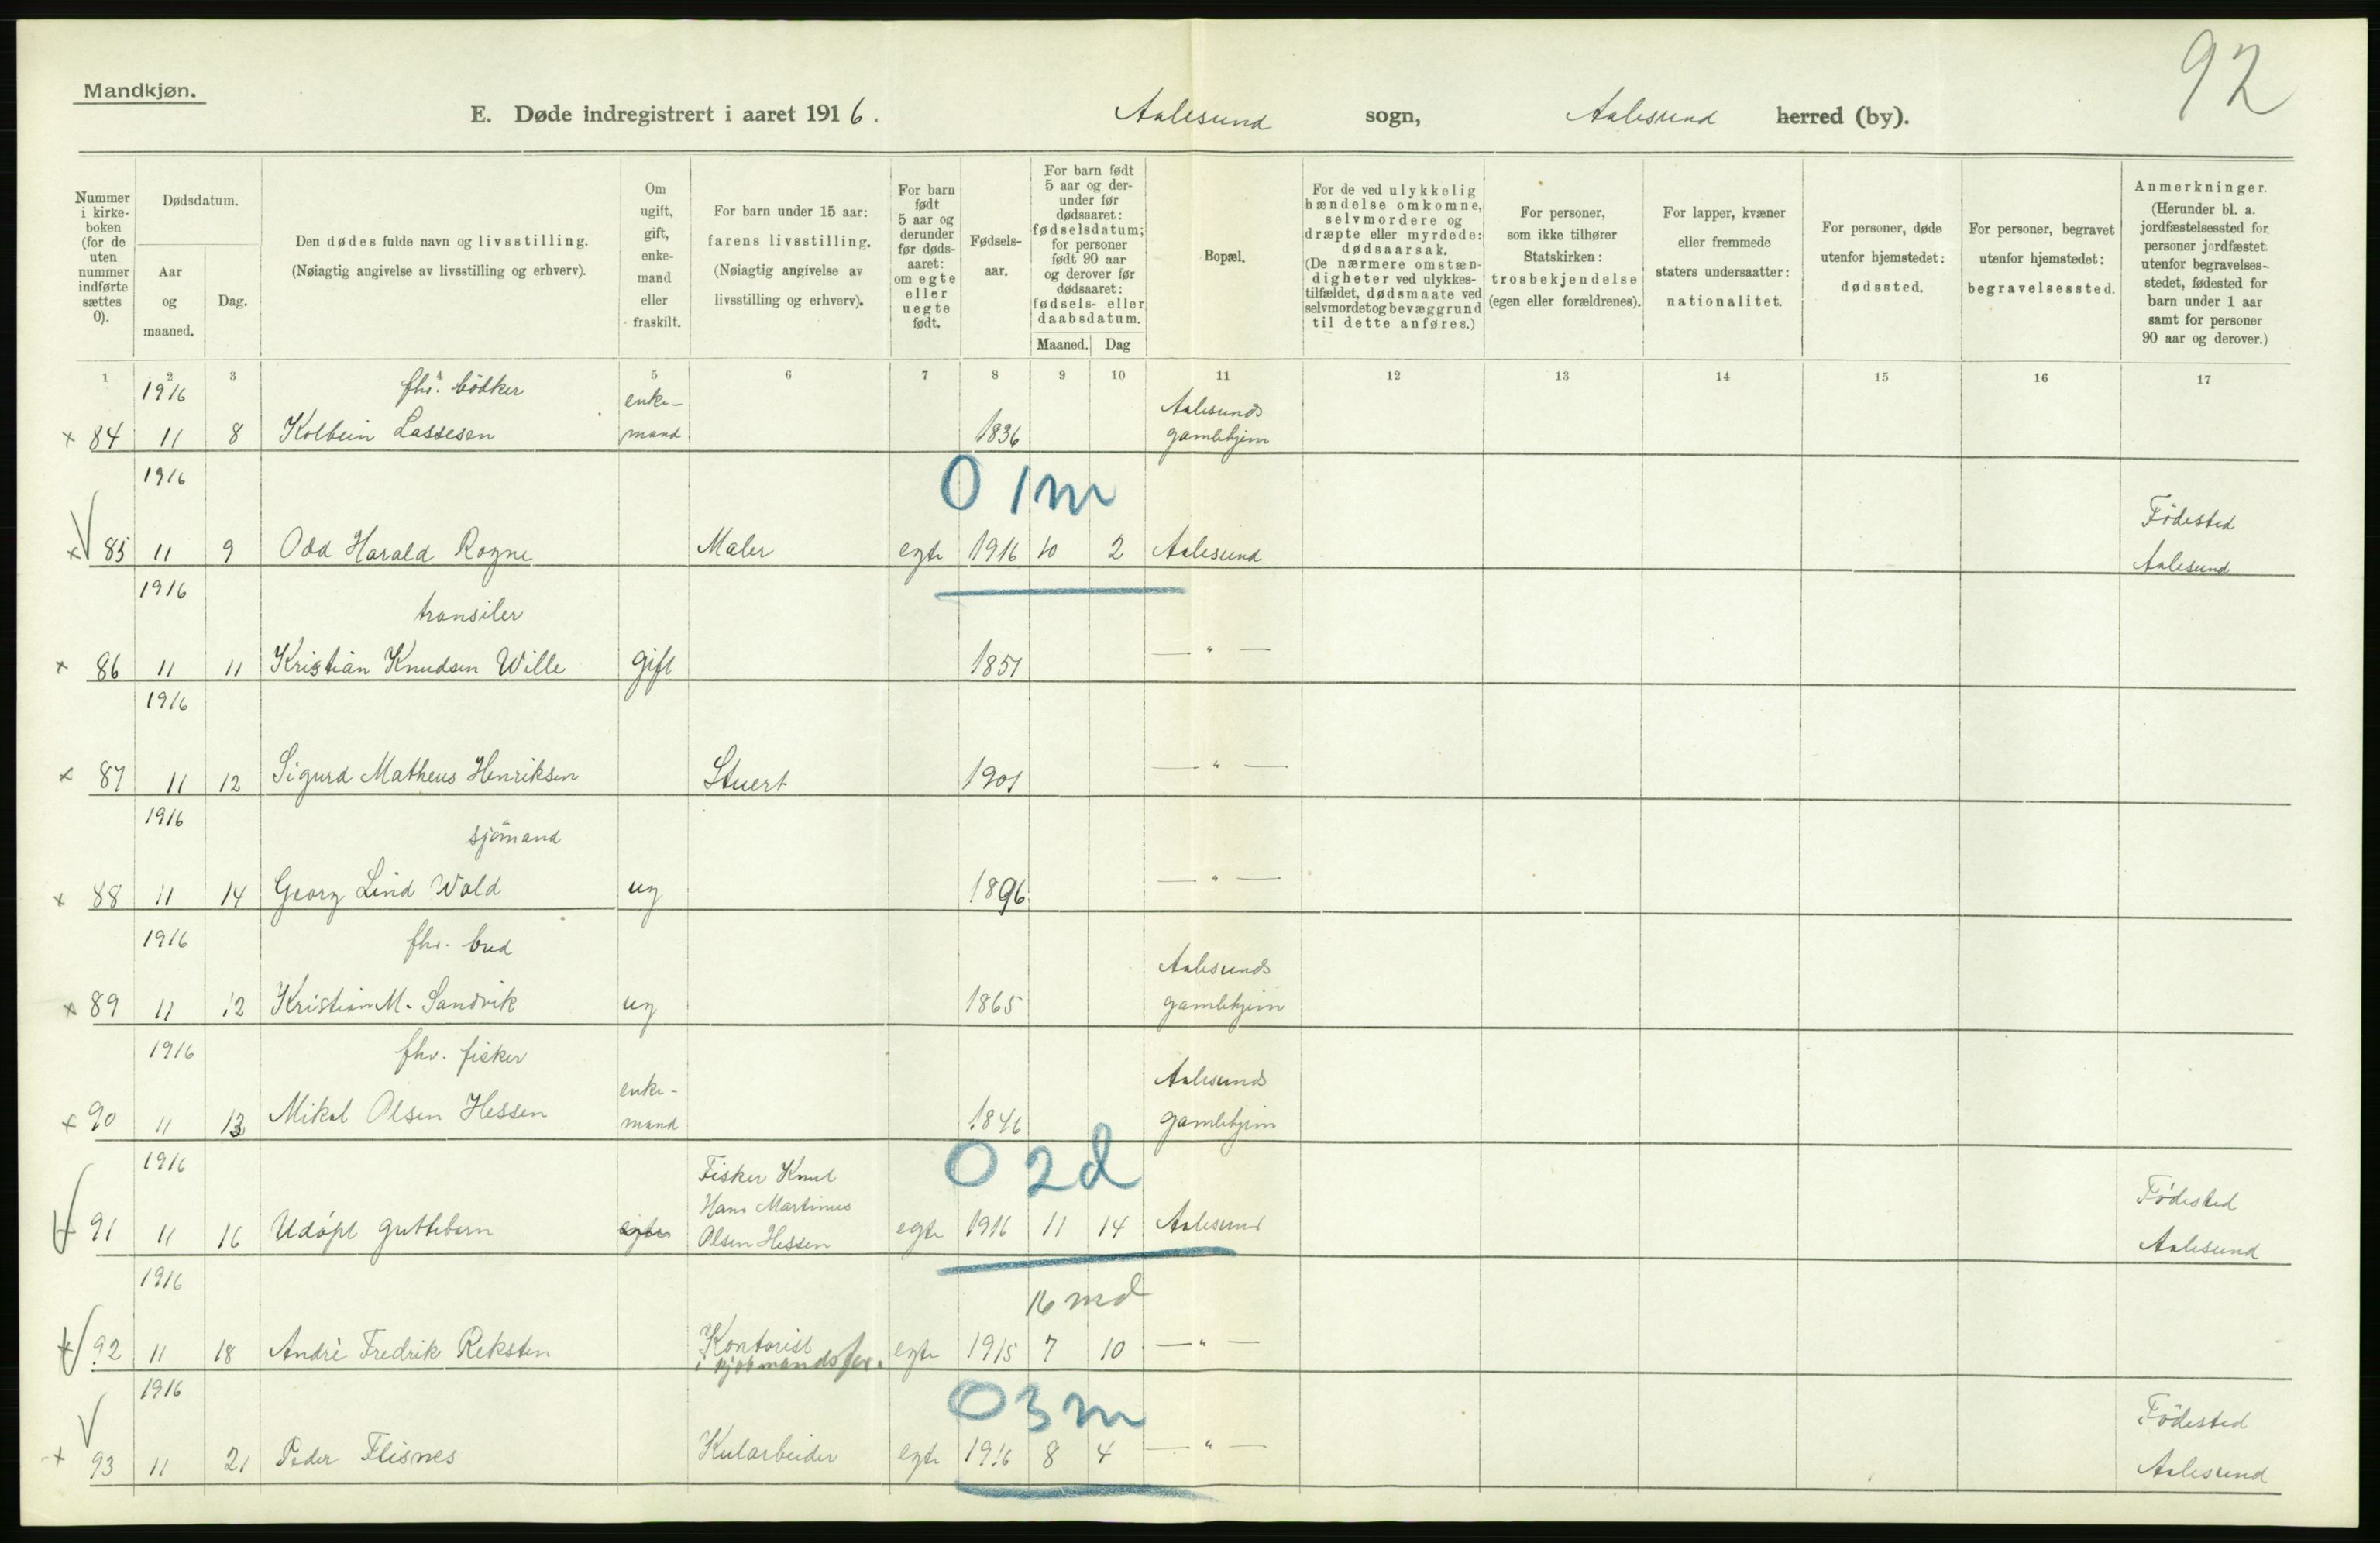 92
Mandkjøn.
E. Døde indregistrert i aaret 1916. Aalesund sogn, Aalesund herred (by).
Nummer i kirke- boken (for de uten nummer indførte sættes 0).
Dødsdatum.
Aar og maaned.
Dag.
Den dødes fulde navn og livsstilling. (Nøiagtig angivelse av livsstilling og erhverv).
Om ugift, gift, enke- mand eller fraskilt.
For barn under 15 aar: farens livsstilling. (Nøiagtig angivelse av livsstilling og erhverv).
For barn født 5 aar og derunder før døds- aaret: om egte eller uegte født.
Fødsels- aar.
For barn født 5 aar og der- under før dødsaaret: fødselsdatum; for personer født 90 aar og derover før dødsaaret: fødsels- eller daabsdatum.
Maaned. Dag
Bopæl.
For de ved ulykkelig hændelse omkomne, selvmordere og dræpte eller myrdede: dødsaarsak. (De nærmere omstæn- digheter ved ulykkes- tilfældet, dødsmaate ved selvmordet og bevæggrund til dette anføres.)
For personer, som ikke tilhører Statskirken: trosbekjendelse (egen eller forældrenes).
For lapper, kvæner eller fremmede staters undersaatter: nationalitet.
For personer, døde utenfor hjemstedet: dødssted.
For personer, begravet utenfor hjemstedet: begravelsessted.
Anmerkninger. (Herunder bl. a. jordfæstelsessted for personer jordfæstet utenfor begravelses- stedet, fødested for barn under 1 aar samt for personer 90 aar og derover.)
1 2 3 4 5 6 7 8 9 10 11 12 13 14 15 16 17
1916 fhv. bödker enke- Aalesunds
x 84 11 8 Kolbein Lassesen mand 1836 gamlehjem
1916 0 1m Födested
x 85 11 9 Odd Harald Rogne Maler egte 1916 10 2 Aalesund Aalesund
1916 transiler
x 86 11 11 Kristian Knudsen Wille gift 1851 — " —
1916
x 87 11 12 Sigurd Matheus Henriksen Stuert 1901 — " —
1916 sjömand
x 88 11 14 Georg Lind Wald ug 1896 — " —
1916 fhv. bud Aalesunds
x 89 11 12 Kristian M. Sandvik ug 1865 gamlehjem
1916 fhv. fisker enke- Aalesunds
x 90 11 13 Mikal Olsen Hessen mand 1846 gamlehjem
1916 Fisker Knut 0 2d Födested
Hans Martinus
91 11 16 Udöpt guttebarn egte Olsen Hessen egte 1916 11 14 Aalesund Aalesund
1916 16 md
x 92 11 18 André Fredrik Reksten Kontorist egte 1915 7 10 — " —
i kjøbmandsfor.
1916 0 3m Födested
x 93 11 21 Peder Flisnes Kularbeider egte 1916 8 4 — " — Aalesund